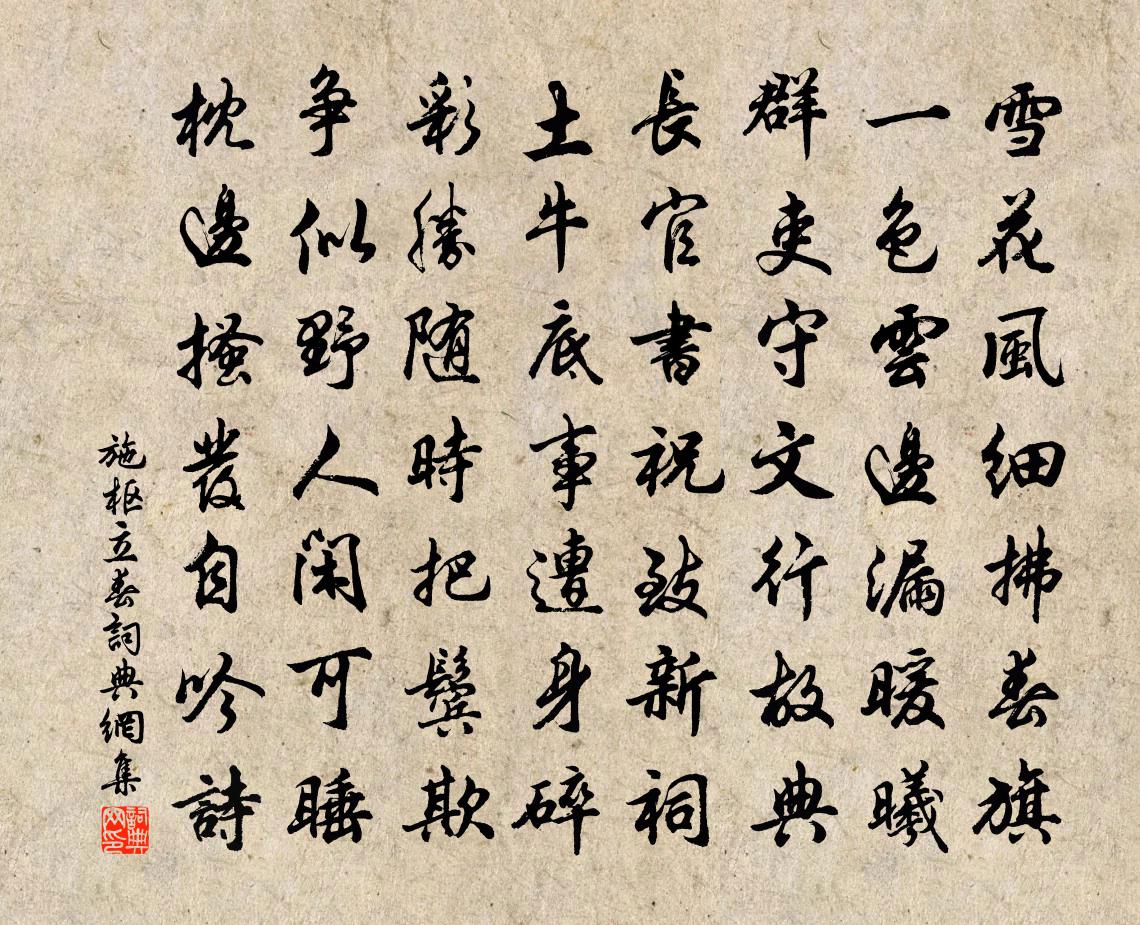 雪花風細拂春旗
一色雲邊漏暖曦
群吏守文行故典
長官書祝致新祠
土牛底事遭身碎
彩勝随時把鬢欺
争似野人閑可睡
枕邊搔發自吟詩
施枢立春詞典網集
詞典網印